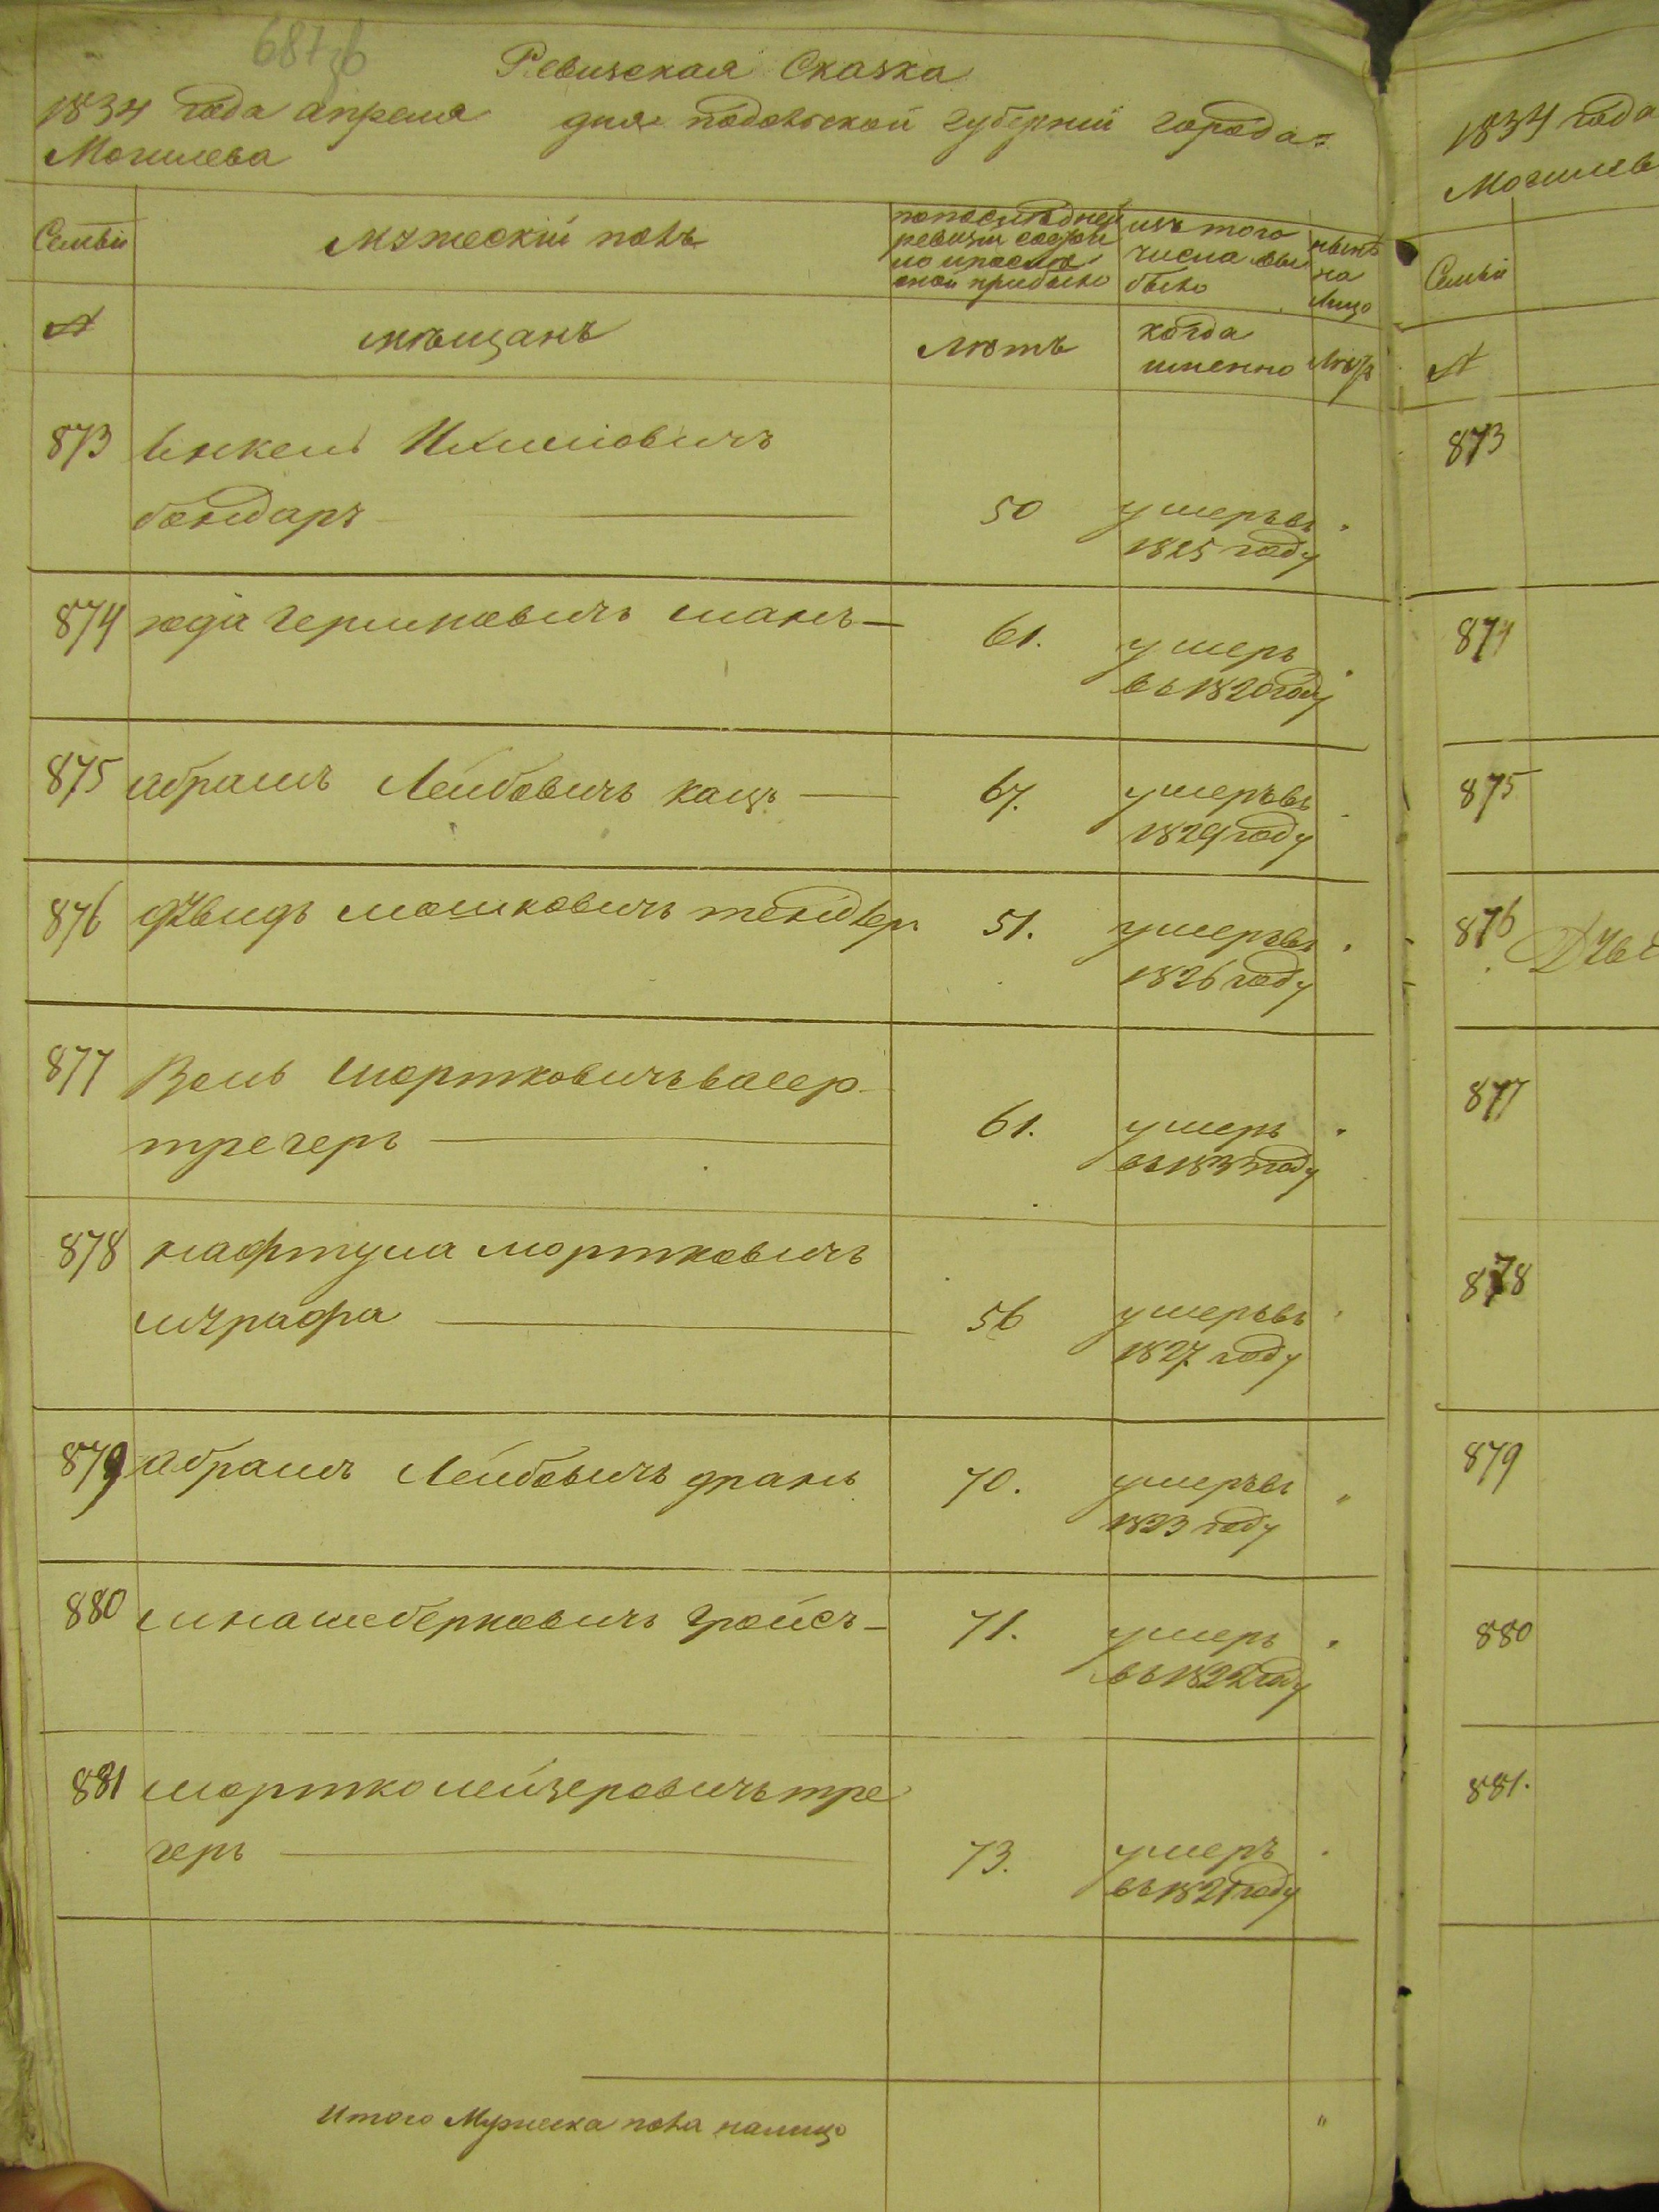 687 об
Ревизская Сказка
1834 года апреля дня подольской губернии города=
Могилева
Семьи
мужеский полъ
по последней
ревизии состоя
ло и после
оной прибыло
изъ того
числа вы
было
ныне
на
лицо
№
мещанъ
летъ
когда
именно
летъ
873 Инкель Ихилiовичъ
бондаръ 50 умеръ въ
1825 году
874 юда гершковичъ шанъ 61. умеръ
въ 1820 году
875 абрамъ Лейбовичъ кацъ 67. умеръ въ
1829 году
876 дувидъ мошковичъ тендлеръ 51. умеръ въ
1826 году
877 Волъ мортковичъ васер
трегеръ 61. умеръ
въ 1833 году
878 нафтула мортковичъ
шграфа 56 умеръ въ
1827 году
879 абрамъ Лейбовичъ дранъ 70. умеръ въ
1823 году
880 минаше берковичъ гройсъ 71. умеръ
въ 1822 году
881 мортко лейзеровичъ тре
геръ 73. умеръ
въ 1821 году
Итого Мужеска пола налицо "
1834 года
Могилев
Семьи
№
873
874
875
876
877
878
879
880
881.